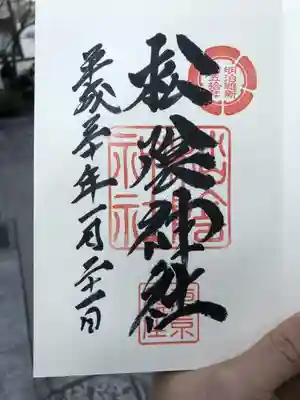 明治維新
百五拾年
松陰神社
平成三十年一月二十一日
松陰
神社